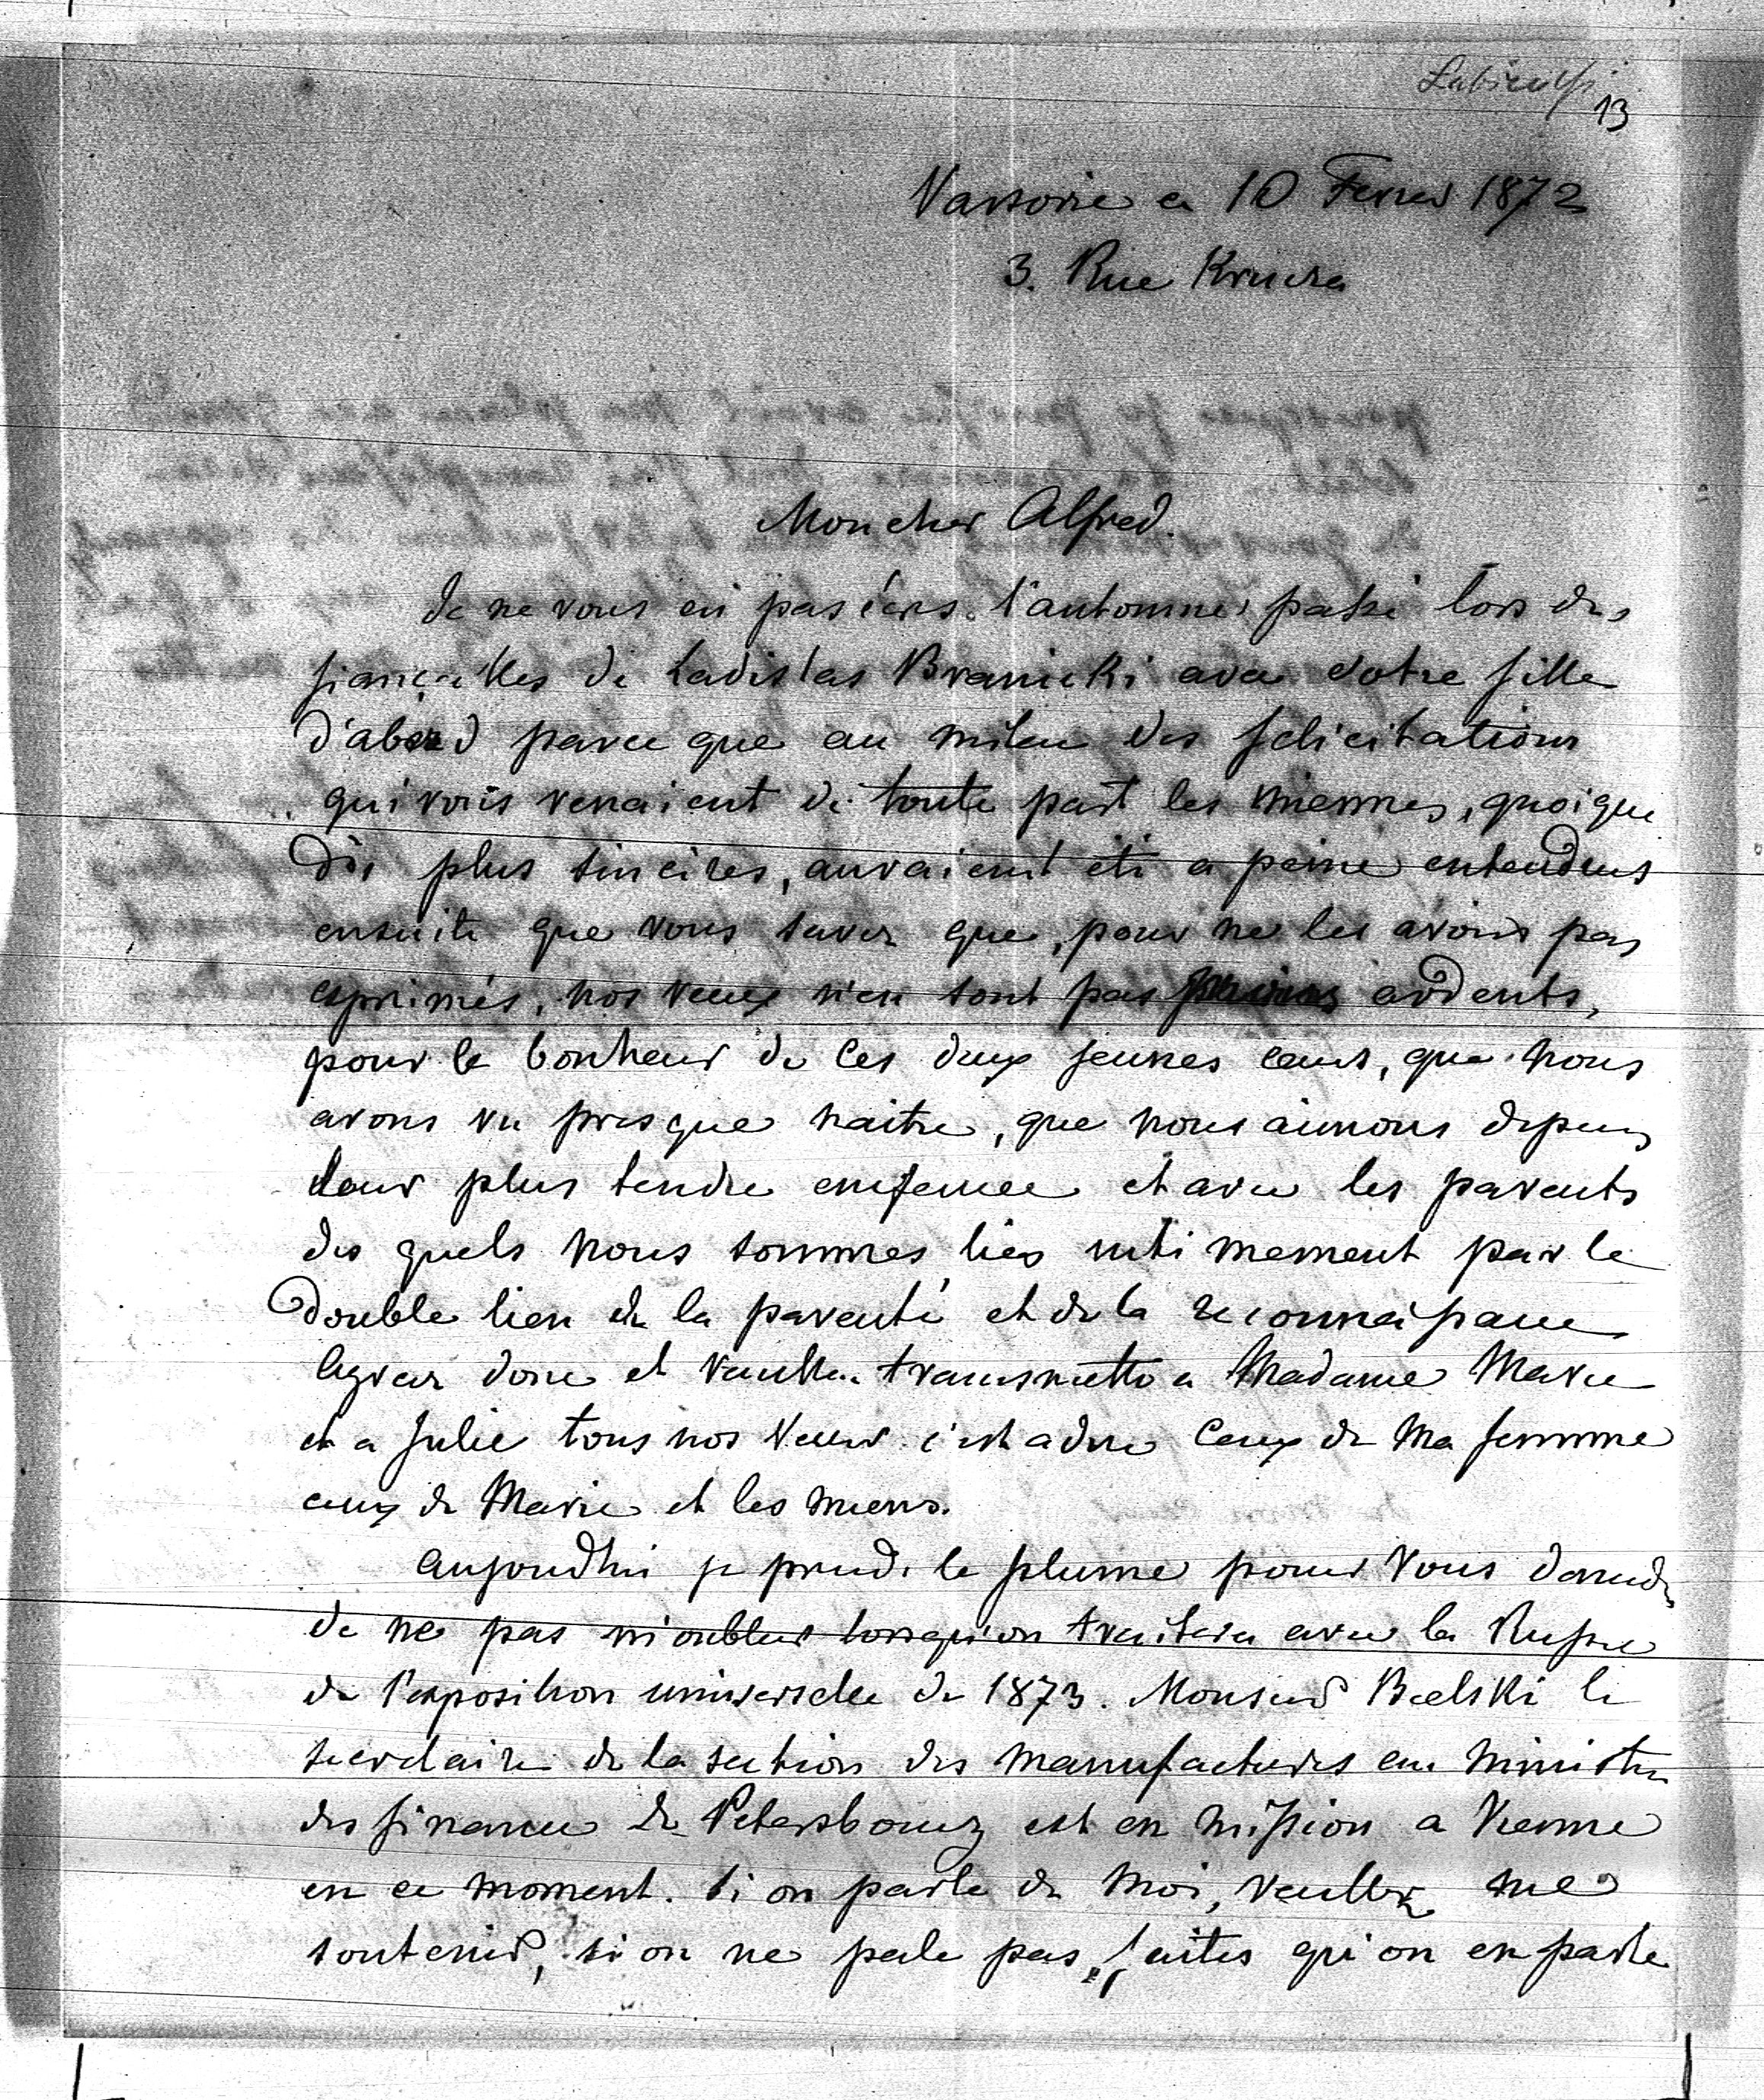 13
Varsovie ce 10 Fevrier 1872
3. Rue Krucza
Mon cher Alfred.
Je ne vous ai pas écris l'automne passé lors des
fiançailles de Ladislas Branicki avec votre fille
d'abord parce que au milieu des felicitations
qui vous venaient de toute part les miennes, quoique
des plus sincères, auraient été a peine entendues
ensuite que vous savez que, pour ne les avoir pas
exprimés, nos veux n'en sont pas moins ardents,
pour le bonheur de ces deux jeunes cœurs, que nous
avons vu presque naitre, que nous aimons depuis
leur plus tendre enfance et avec les parents
des quels nous sommes liés intimement par le
double lien de la parenté et de la reconnaissance
Agreez donc et veuillez transmettre a Madame Marie
et a Julie tous nos veux c'est a dire ceux de ma femme
ceux de Marie et les miens.
Aujourdhui je prends la plume pour vous demander
de ne pas m'oublier lorsqu'on traitera avec la Russie
de l'exposition universelle de 1873. Monsieur Bielski le
secretaire de la section des manufactures au ministere
des finances de Petersbourg est en mission a Vienne
en ce moment. Si on parle de moi, veuillez me
soutenir, si on ne parle pas, faites qu'on en parle